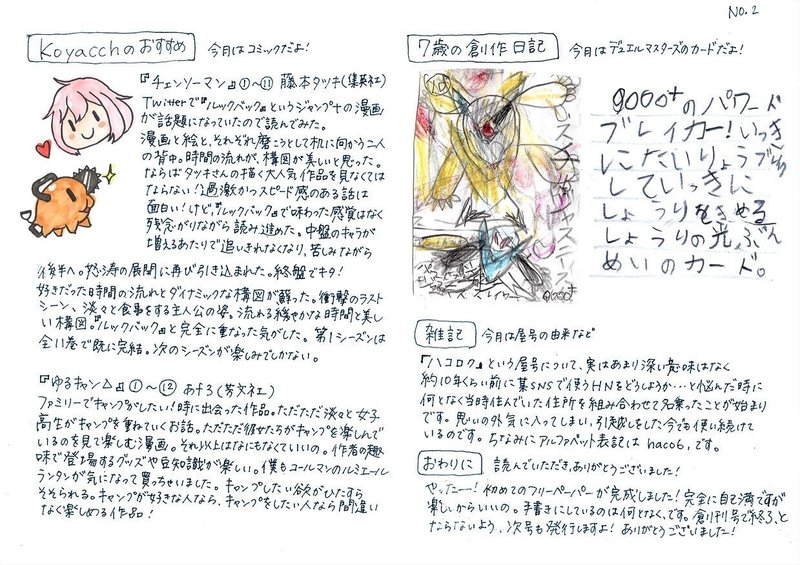 NO.2
Koyacchのおすすめ 今月はコミックだよ!
『チェンソーマン』①〜⑪ 藤本タツキ(集英社)
Twitterで『ルックバック』というジャンプ+の漫画
が話題になっていたので読んでみた。
漫画と絵と、それぞれ磨こうとして机に向かう二人
の背中。時間の流れが、構図が美しいと思った。
ならばタツキさんの描く大人気作品を見なくては
ならない!過激かつスピード感のある話は
面白い!けど、『ルックバック』で味わった感覚はなく
残念がりながら読み進めた。中盤のキャラが
増えるあたりで追いきれなくなり、苦しみながら
後半へ。怒涛の展開に再び引き込まれました。終盤でキタ!
好きだった時間の流れとダイナミックな構図が蘇った。衝撃のラスト
シーン、淡々と食事をする主人公の姿。流れる緩やかな時間と美し
い構図。『ルックバック』と完全に重なった気がした。第1シーズンは
全11巻で既に完結。次のシーズンが楽しみでしかない。
『ゆるキャン△』①〜⑫ あfろ(芳文社)
ファミリーでキャンプがしたい!時に出会った作品。ただただ淡々と女子
高生がキャンプを重ねていくお話。ただただ彼女たちがキャンプを楽しんで
いるのを見て楽しむ漫画。それ以上はなにもなくていいの。作者の趣
味で登場するグッズや豆知識が楽しい。僕もコールマンのルミエール
ランタンが気になって買っちゃいました。キャンプしたい欲がひたすら
そそられる。キャンプが好きな人なら、キャンプをしたい人なら間違い
なく楽しめる作品!
7歳の創作日記 今月はデュエルマスターズのカードだよ!
9000+のパワード
ブレイカー!いっき
にたいりょう
していっきに
しょうりをきめる
しょうりの光ぶん
めいのカード。
雑記 今月は屋号の由来など
『ハコロク』という屋号について、実はあまり深い意味はなく
約10年くらい前に某SNSで使うHNをどうしようか…と悩んだ時に
何となく当時住んでいた住所を組み合わせて名乗ったことが始まり
です。思いの外気に入ってしまい、引越しをした今でも使い続けて
いるのです。ちなみにアルファベット表記は haco6, です。
おわりに 読んでいただき、ありがとうございました!
やったー!初めてのフリーペーパーが完成しました!完全に自己満ですが
楽しいからいいの。手書きにしているのは何となく、です。創刊号で終了、と
ならないよう、次号も発行しますよ!ありがとうございました!